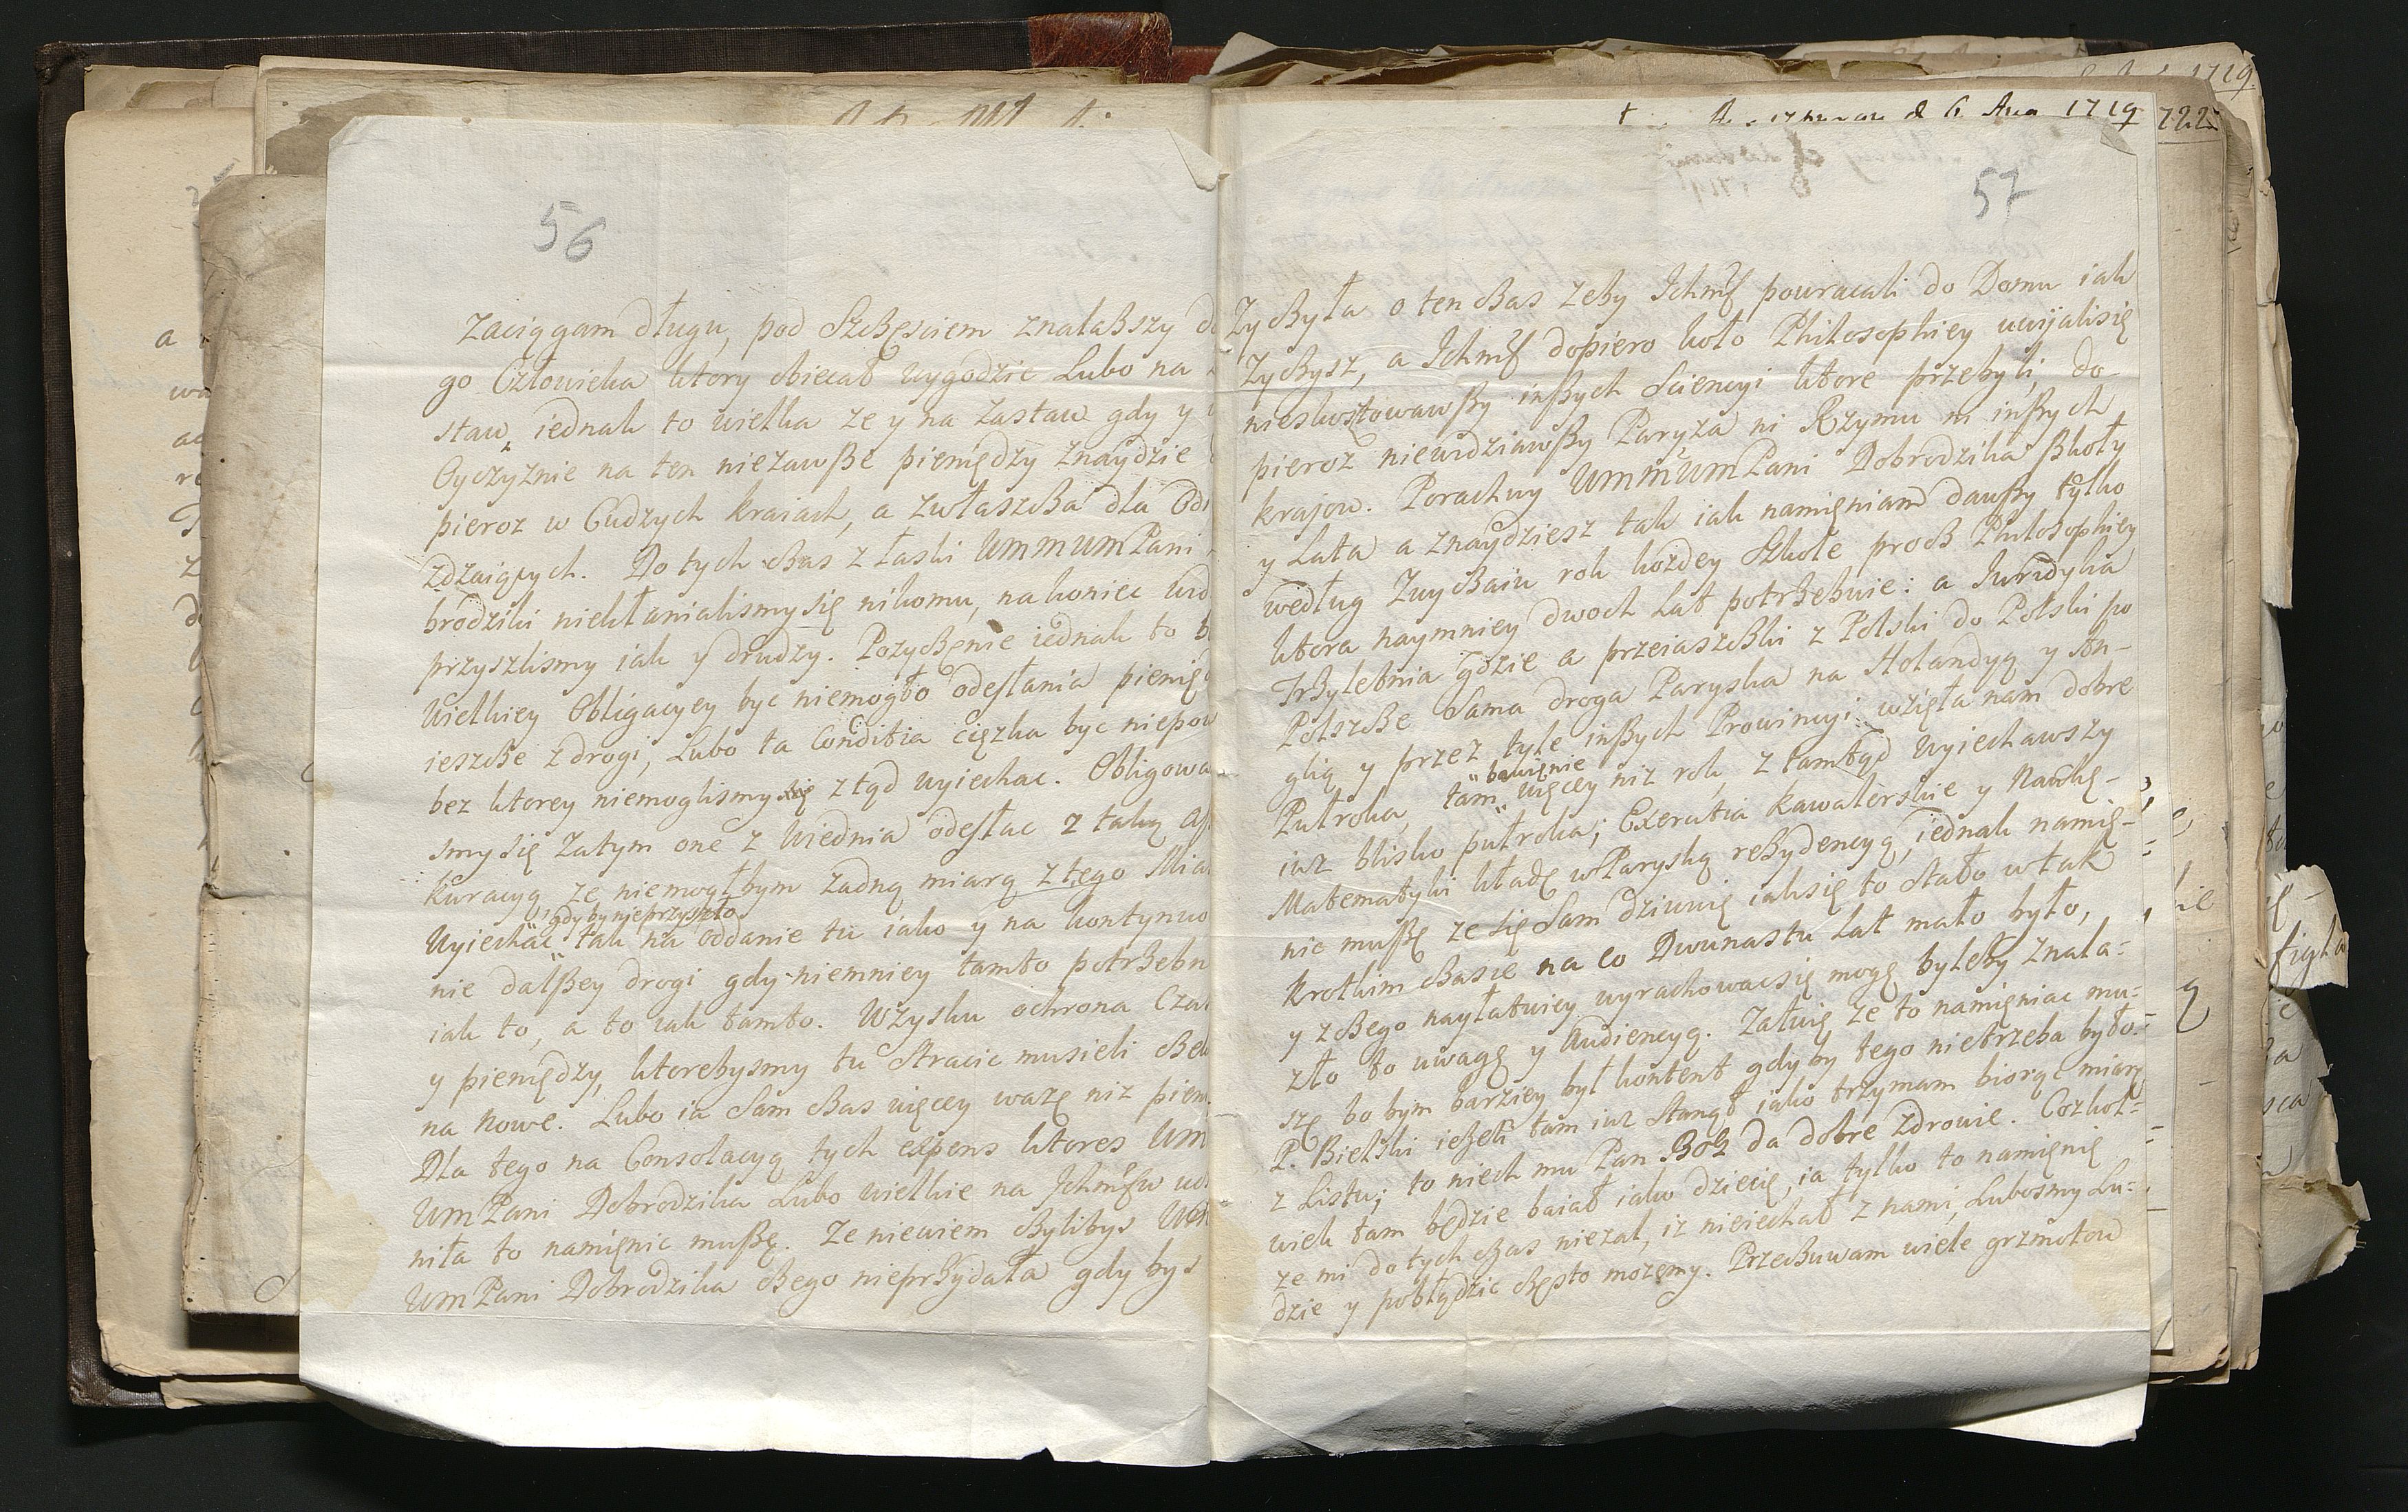 56
Zaciągam długu, pod Szczęsciem znalaszszy
go Człowieka ktory obiecał wygodzic Lubo na
staw, iednak to wielka ze y na zastaw gdy y
Oyczyznie na ten niezawsze pieniędzy znaydzie
pieroz w Cudzych kraiach, a zwłaszcza dla
zdzaiących. Do tych czas z łaski UmmUmPani
brodziki niekłanialismy się nikomu, nakoniec
przyszlismy iak y drudzy. Pozyczenie iednak to
Wielkiey Obligacyey byc niemogło odesłania
ieszcze z drogi, Lubo ta Conditia cięzka byc
bez ktorey niemoglismy ztąd wyiechac.
smy się Zatym one z Wiednia odesłac z taką
kuracyą, ze niemogłbym zadną miarą z tego
gdyby nieprzyszło
Wyiechac tak na oddanie tu iako y na
nie dalszey drogi gdy niemniey tamto
iak to, a to iak tamto. Wzysku ochrona
y pieniędzy, ktorebysmy tu stracic musieli
na nowe. Lubo ia sam czas więcey wazę niz
Dla tego na Consolacyą tych expens ktores
UmPani Dobrodzika Lubo wielkie na Ichmściw
niła to namięnic muszę. Ze niewiem czylibys
UmPani Dobrodzika czego nieprzydała gdy bys
1719
722
57
Zyczyła o ten czas zeby Ichmść powracali do Domu iak
Zyczysz, a Ichmść dopiero koło Philosophiey uwijalisię
nieskosztowawszy inszych Sciencyi ktore przebyli, do
pieroz niewidziawszy Paryza ni Rzymu ni inszych
krajow. Porachuy UmmUmPani Dobrodzika szkoły
y Lata a znaydziesz tak iak namięniam dawszy tylko
według Zwyczaiu rok kozdey Szkole procz Philosophiey
ktora naymniey dwoch Lat potrzebuie: a Iuridyka
Trzyletnia gdzie a przeiaszczki z Polski do Polski po
Polszcze Sama droga Paryska na Holandyą y An-
glią y przez tyle inszych Prowincyi wzięła nam dobre
bawięnie
Pułroka, tam więcey niz rok, z tamtąd Wyiechawszy
iuz blisko pułroka; Exercitia Kawalerskie y Naukę
Matematyki kładę w Paryską rezydencyą, iednak namię-
nic muszę ze się Sam dziwuię iaksię to stało w tak
krotkim czasie na co Dwunastu Lat mało było,
y z czego nayłatwiey wyrachowacsię mogę byleby znala=
zło to uwagę y Audiencyą. Załuię ze to namięniac mu=
szę bo bym barziey był kontent gdy by tego nietrzeba było.
P. Bielski iezeli tam iuz stanął iako trzymam biorąc miarę
z Listu; to niech mu Pan Bog da dobre zdrowie. Cozkol=
wiek tam będzie baiał iako dziecię, ia tylko to namięnię
ze mi do tych czas niezal, iz nieiechał z nami, Lubosmy Lu=
dzie y pobłądzic często mozemy. Przeczuwam wiele grzmotow